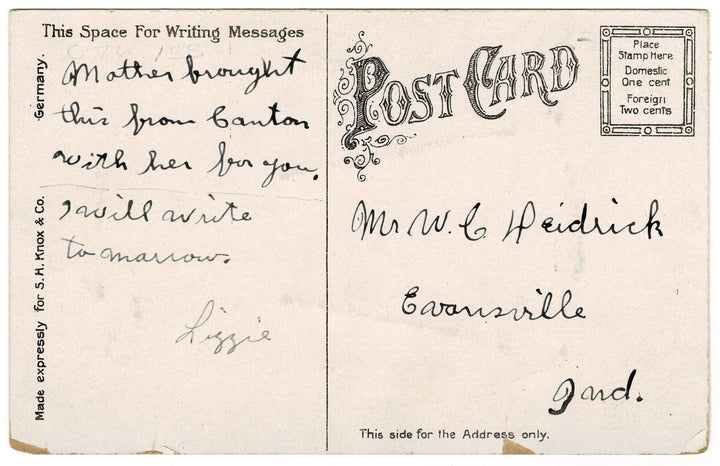 This Space For Writing Messages
Mother brought
this from Canton
with her for you.
I will write
to marrow.
Lizzie
Made expressly for S. H. Knox & Co. Germany.
POST CARD
Place
Stamp Here
Domestic
One cent
Foreign
Two cents
Mr W. C. Heidrick
Evansville
Ind.
This side for the Address only.